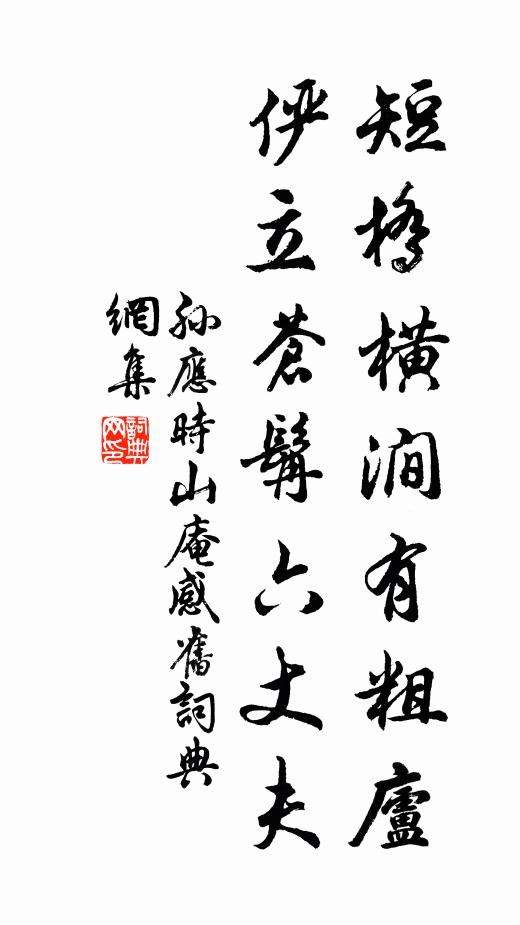 短橋橫澗有粗廬
儼立蒼髯六丈夫
孫應時山庵感舊詞典
網集
詞典網印